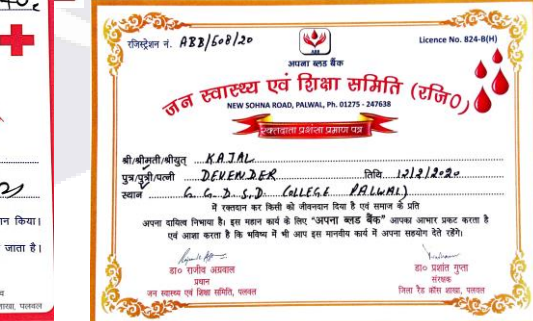 रजिस्ट्रेशन नं. ABB/508/20
Licence No. 824-B(H)
अपना ब्लड बैंक
जन स्वास्थ्य एवं शिक्षा समिति (रजि0)
NEW SOHNA ROAD, PALWAL, Ph. 01275 - 247638
रक्तदाता प्रशंसा प्रमाण पत्र
श्री/श्रीमती/श्रीयुत् KAJAL
पुत्र/पुत्री/पत्नी DEVENDER तिथि 12/2/2020
स्थान G. G. D. S. D. COLLEGE PALWAL)
में रक्तदान कर किसी को जीवनदान दिया है एवं समाज के प्रति
अपना दायित्व निभाया है। इस महान कार्य के लिए "अपना ब्लड बैंक" आपका आभार प्रकट करता है
एवं आशा करता है कि भविष्य में भी आप इस मानवीय कार्य में अपना सहयोग देते रहेंगे।
डा० राजीव अग्रवाल
प्रधान
जन स्वास्थ्य एवं शिक्षा समिति, पलवल
डा० प्रशांत गुप्ता
संरक्षक
जिला रैड क्रॉस शाखा, पलवल
न किया।
जाता है।
शाखा, पलवल